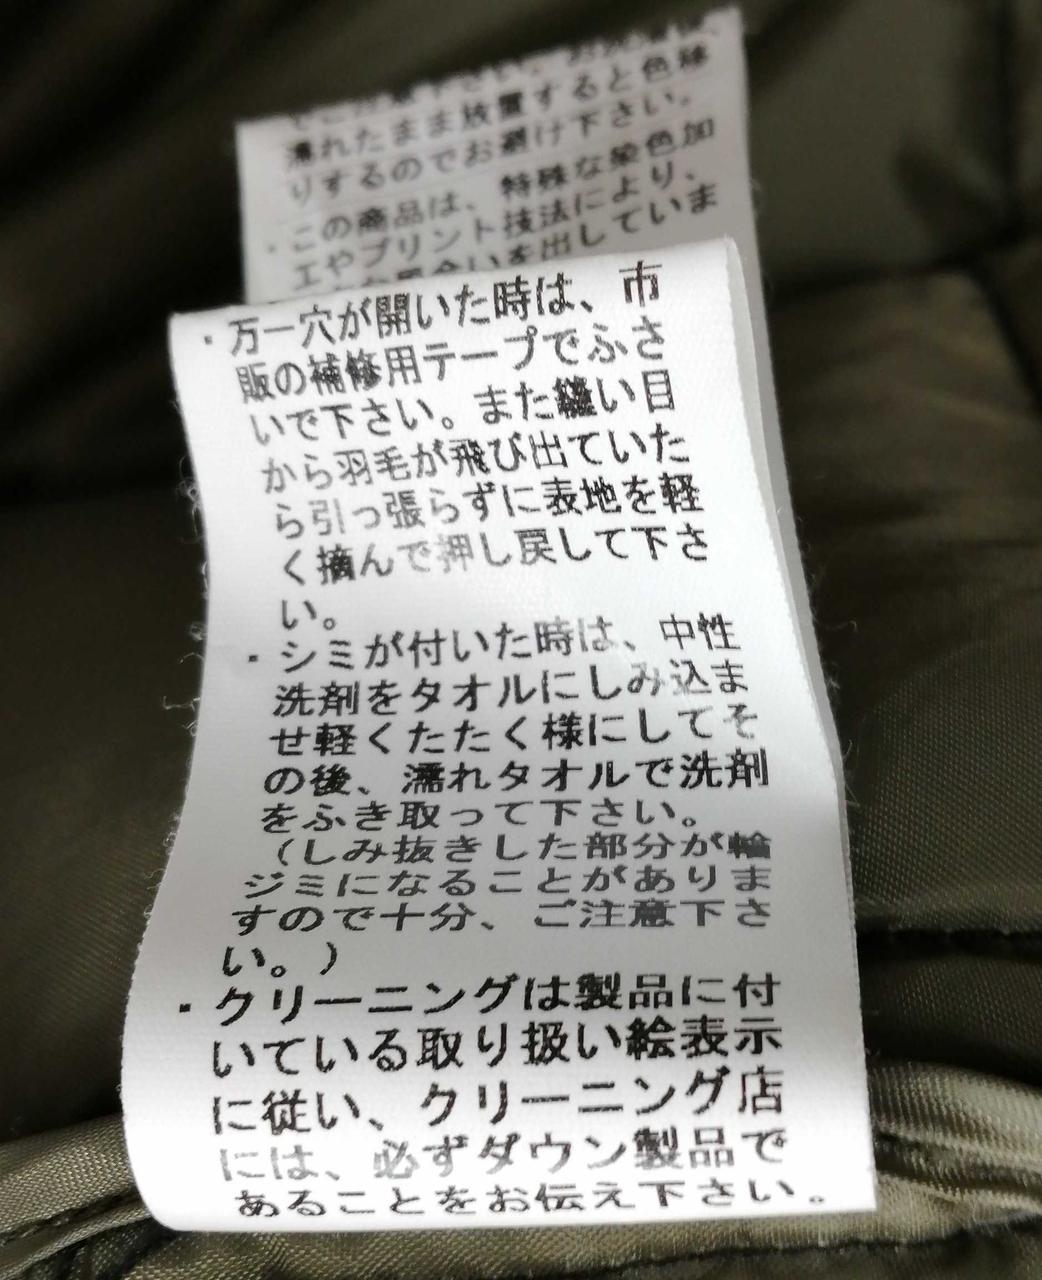 濡れたまま放置すると色移
りするのでお避け下さい。
・この商品は、特殊な染色加
工やプリント技法により、
風合いを出していま
・万一穴が開いた時は、市
販の補修用テープでふさ
いで下さい。また縫い目
から羽毛が飛び出ていた
ら引っ張らずに表地を軽
く摘んで押し戻して下さ
い。
・シミが付いた時は、中性
洗剤をタオルにしみ込ま
せ軽くたたく様にしてそ
の後、濡れタオルで洗剤
をふき取って下さい。
(しみ抜きした部分が輪
ジミになることがありま
すので十分、ご注意下さ
い。)
・クリーニングは製品に付
いている取り扱い絵表示
に従い、クリーニング店
には、必ずダウン製品で
あることをお伝え下さい。